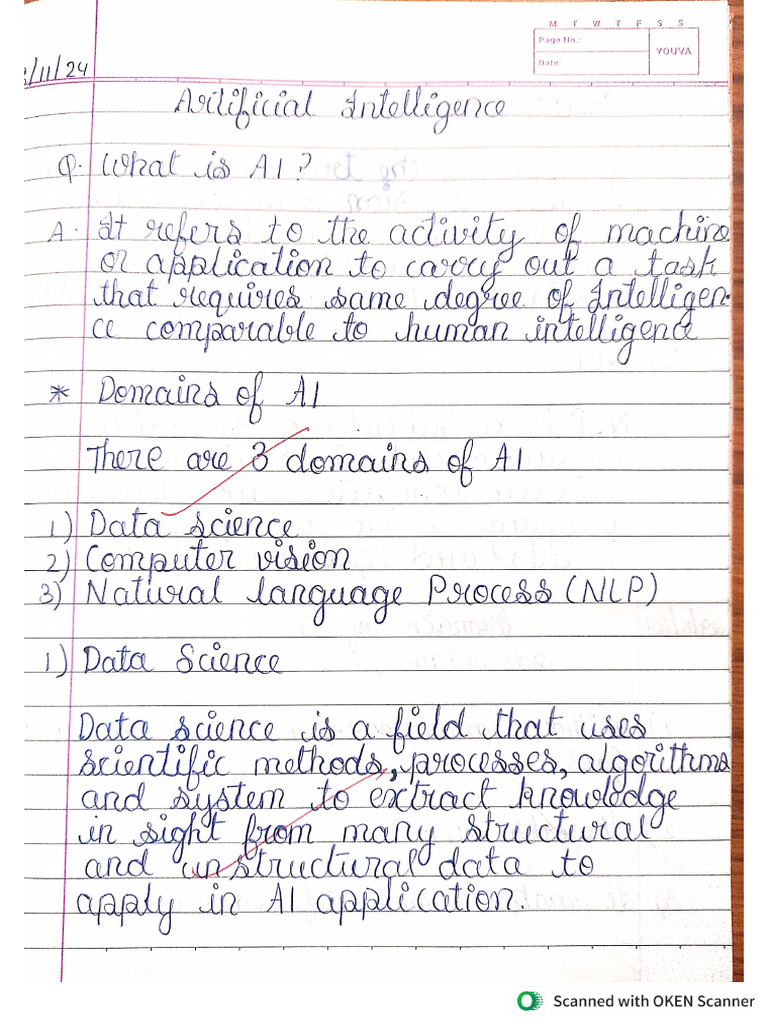 M T W T F S S
Page No.:
Date:
YOUVA
/11/24
Artificial Intelligence
Q. What is AI?
A. It refers to the activity of machine
or application to carry out a task
that requires same degree of Intelligen-
ce comparable to human intelligence
* Domains of AI
There are 3 domains of AI
1) Data science
2) Computer vision
3) Natural language Process (NLP)
1) Data Science
Data science is a field that uses
scientific methods, processes, algorithms
and system to extract knowledge
in sight from many structural
and unstructural data to
apply in AI application.
Scanned with OKEN Scanner